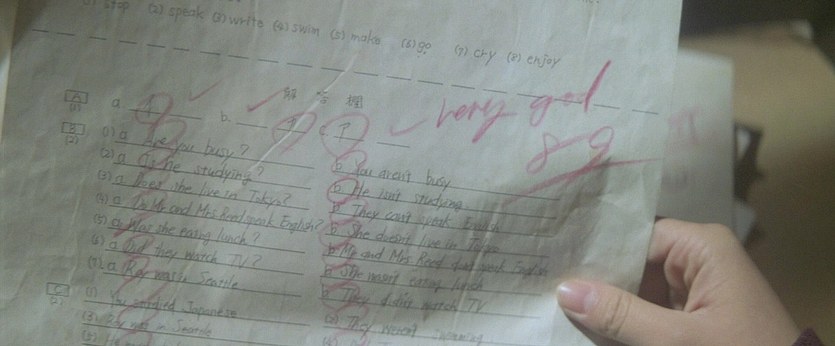 (1) stop (2) speak (3) write (4) swim (5) make (6) go (7) cry (8) enjoy
解 答 欄
very good
89
A (1) a. b. c.
B (2) (1) a Are you busy? b You aren't busy
(2) a Is he studying? b He isn't studying
(3) a Does she live in Tokyo? b They can't speak English
(4) a Do Mr and Mrs Reed speak English? b She doesn't live in Tokyo
(5) a Was she eating lunch? b Mr and Mrs Reed don't speak English
(6) a Did they watch TV? b She wasn't eating lunch
(7) a was in Seattle b They didn't watch TV
C (2) (1) You studied Japanese (2) They weren't swimming
(3) was in Seattle
(5)